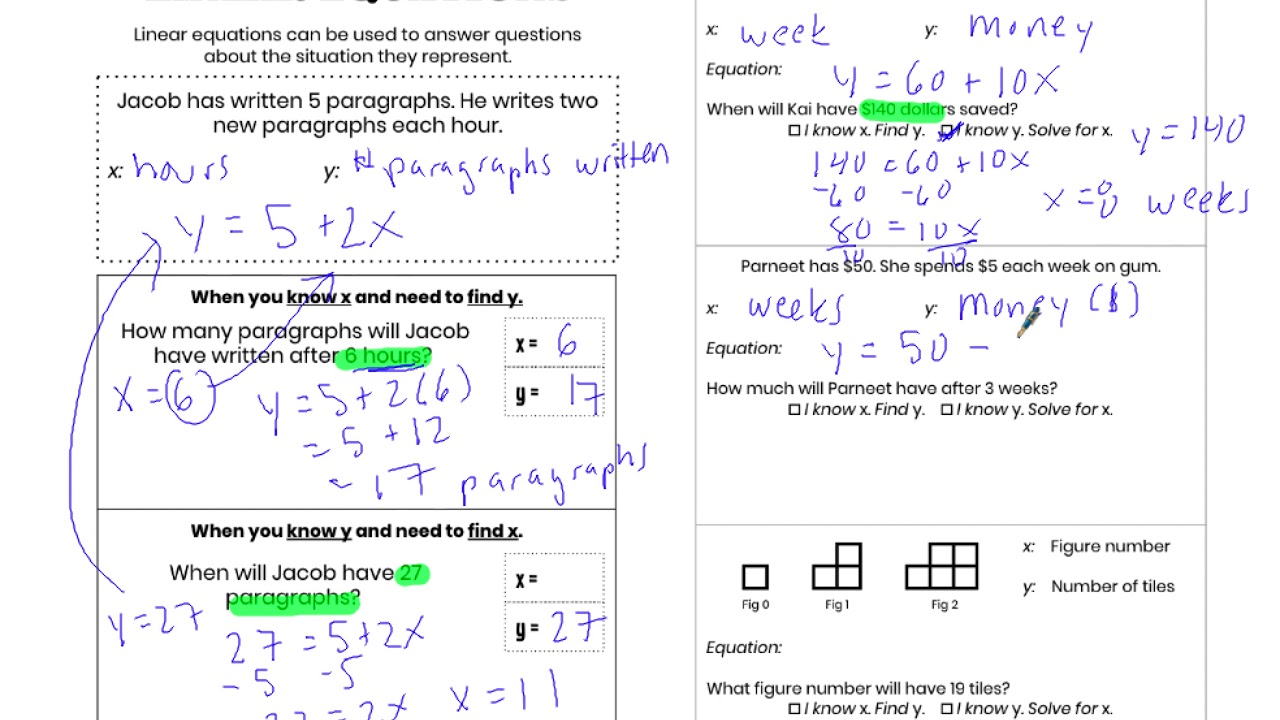 LINEAR EQUATIONS
Linear equations can be used to answer questions
about the situation they represent.
Jacob has written 5 paragraphs. He writes two
new paragraphs each hour.
x: hours y: # paragraphs written
y = 5 + 2x
When you know x and need to find y.
How many paragraphs will Jacob
have written after 6 hours?
x = 6
y = 17
x = 6
y = 5 + 2(6)
= 5 + 12
= 17 paragraphs
When you know y and need to find x.
When will Jacob have 27
paragraphs?
x =
y = 27
y = 27
27 = 5 + 2x
-5 -5
22 = 2x
x = 11
x: week y: money
Equation: y = 60 + 10x
When will Kai have $140 dollars saved?
I know x. Find y. I know y. Solve for x.
y = 140
140 = 60 + 10x
-60 -60
80 = 10x
10 10
x = 8 weeks
Parneet has $50. She spends $5 each week on gum.
x: weeks y: money ($)
Equation: y = 50 -
How much will Parneet have after 3 weeks?
I know x. Find y. I know y. Solve for x.
Fig 0 Fig 1 Fig 2
x: Figure number
y: Number of tiles
Equation:
What figure number will have 19 tiles?
I know x. Find y. I know y. Solve for x.